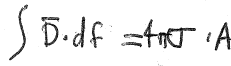 ∫ D̄·df = 4πσ·A